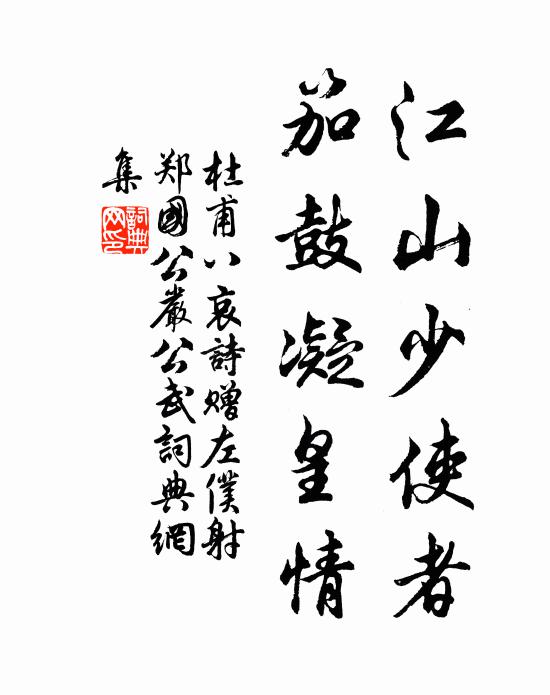 江山少使者
笳鼓凝皇情
杜甫八哀詩贈左僕射
郑國公嚴公武詞典網
集
詞典网印